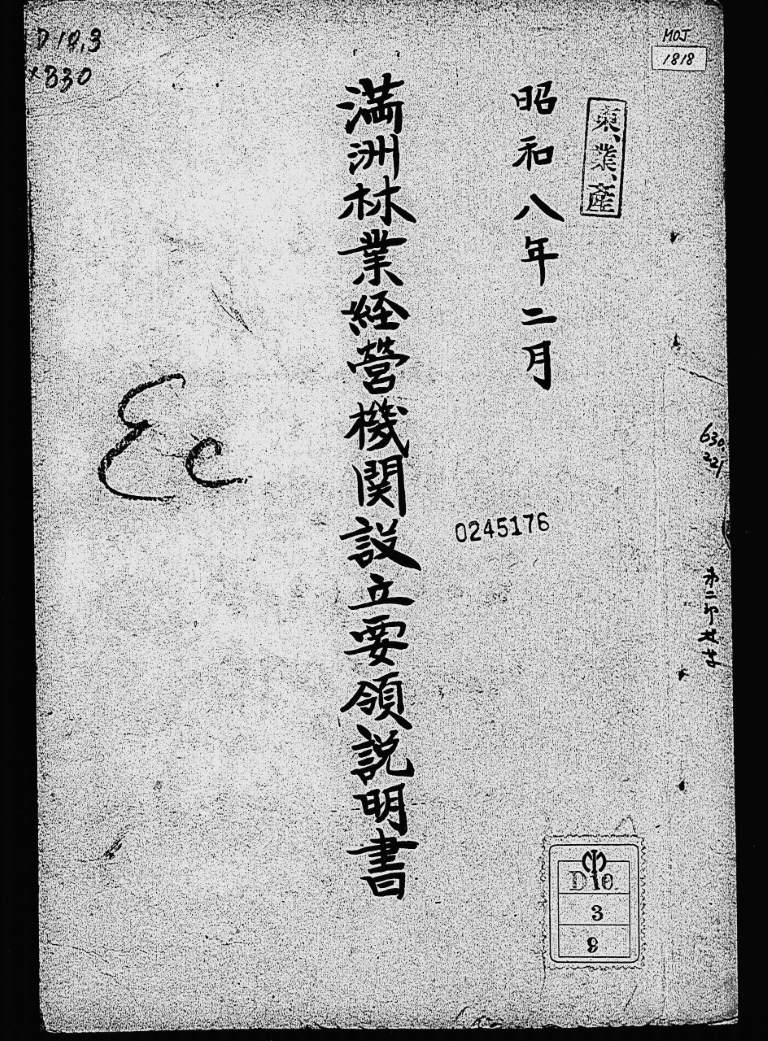 D10,3
×330
MOJ
1818
東、業、産
昭和八年二月
満洲林業経営機関設立要領説明書
Ec
0245176
630
221
D 10
3
9